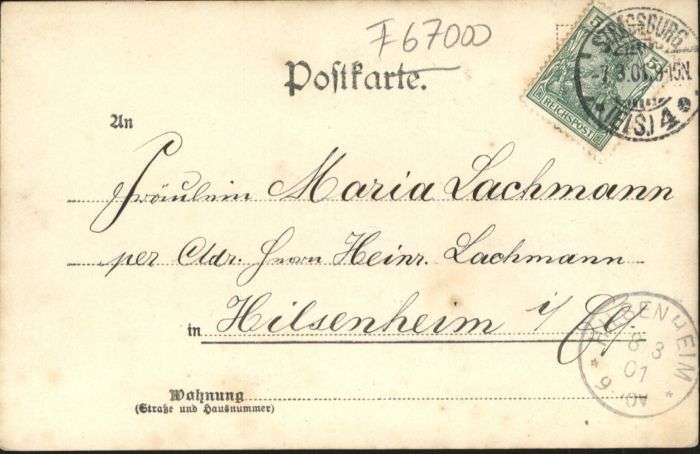 F67000
Postkarte.
5 5
REICHSPOST
STRASSBURG
7.3.01.
(ELS.)
4
An
Fräulein Maria Lachmann
per Adr. Herrn Heinr. Lachmann
in Hilsenheim i/ Els.
HILSENHEIM
8 3
01
9
Wohnung
(Straße und Hausnummer)